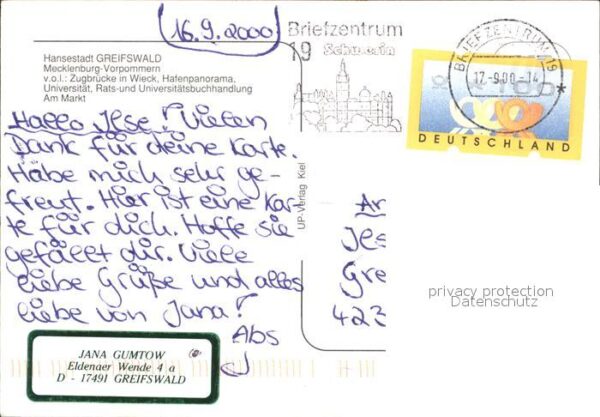 16.9.2000
Briefzentrum
19 Schwerin
BRIEFZENTRUM 19
17-9.00-14
DEUTSCHLAND
Hansestadt GREIFSWALD
Mecklenburg-Vorpommern
v.o.l.: Zugbrücke in Wieck, Hafenpanorama,
Universität, Rats-und Universitätsbuchhandlung
Am Markt
Hallo Ilse! Vielen
Dank für deine Karte.
Habe mich sehr ge-
freut. Hier ist eine Kar-
te für dich. Hoffe sie
gefällt dir. Viele
liebe Grüße und alles
liebe von Jana!
Abs
JANA GUMTOW
Eldenaer Wende 4 a
D - 17491 GREIFSWALD
UP-Verlag Kiel
An
Ilse
Gre
423
privacy protection
Datenschutz